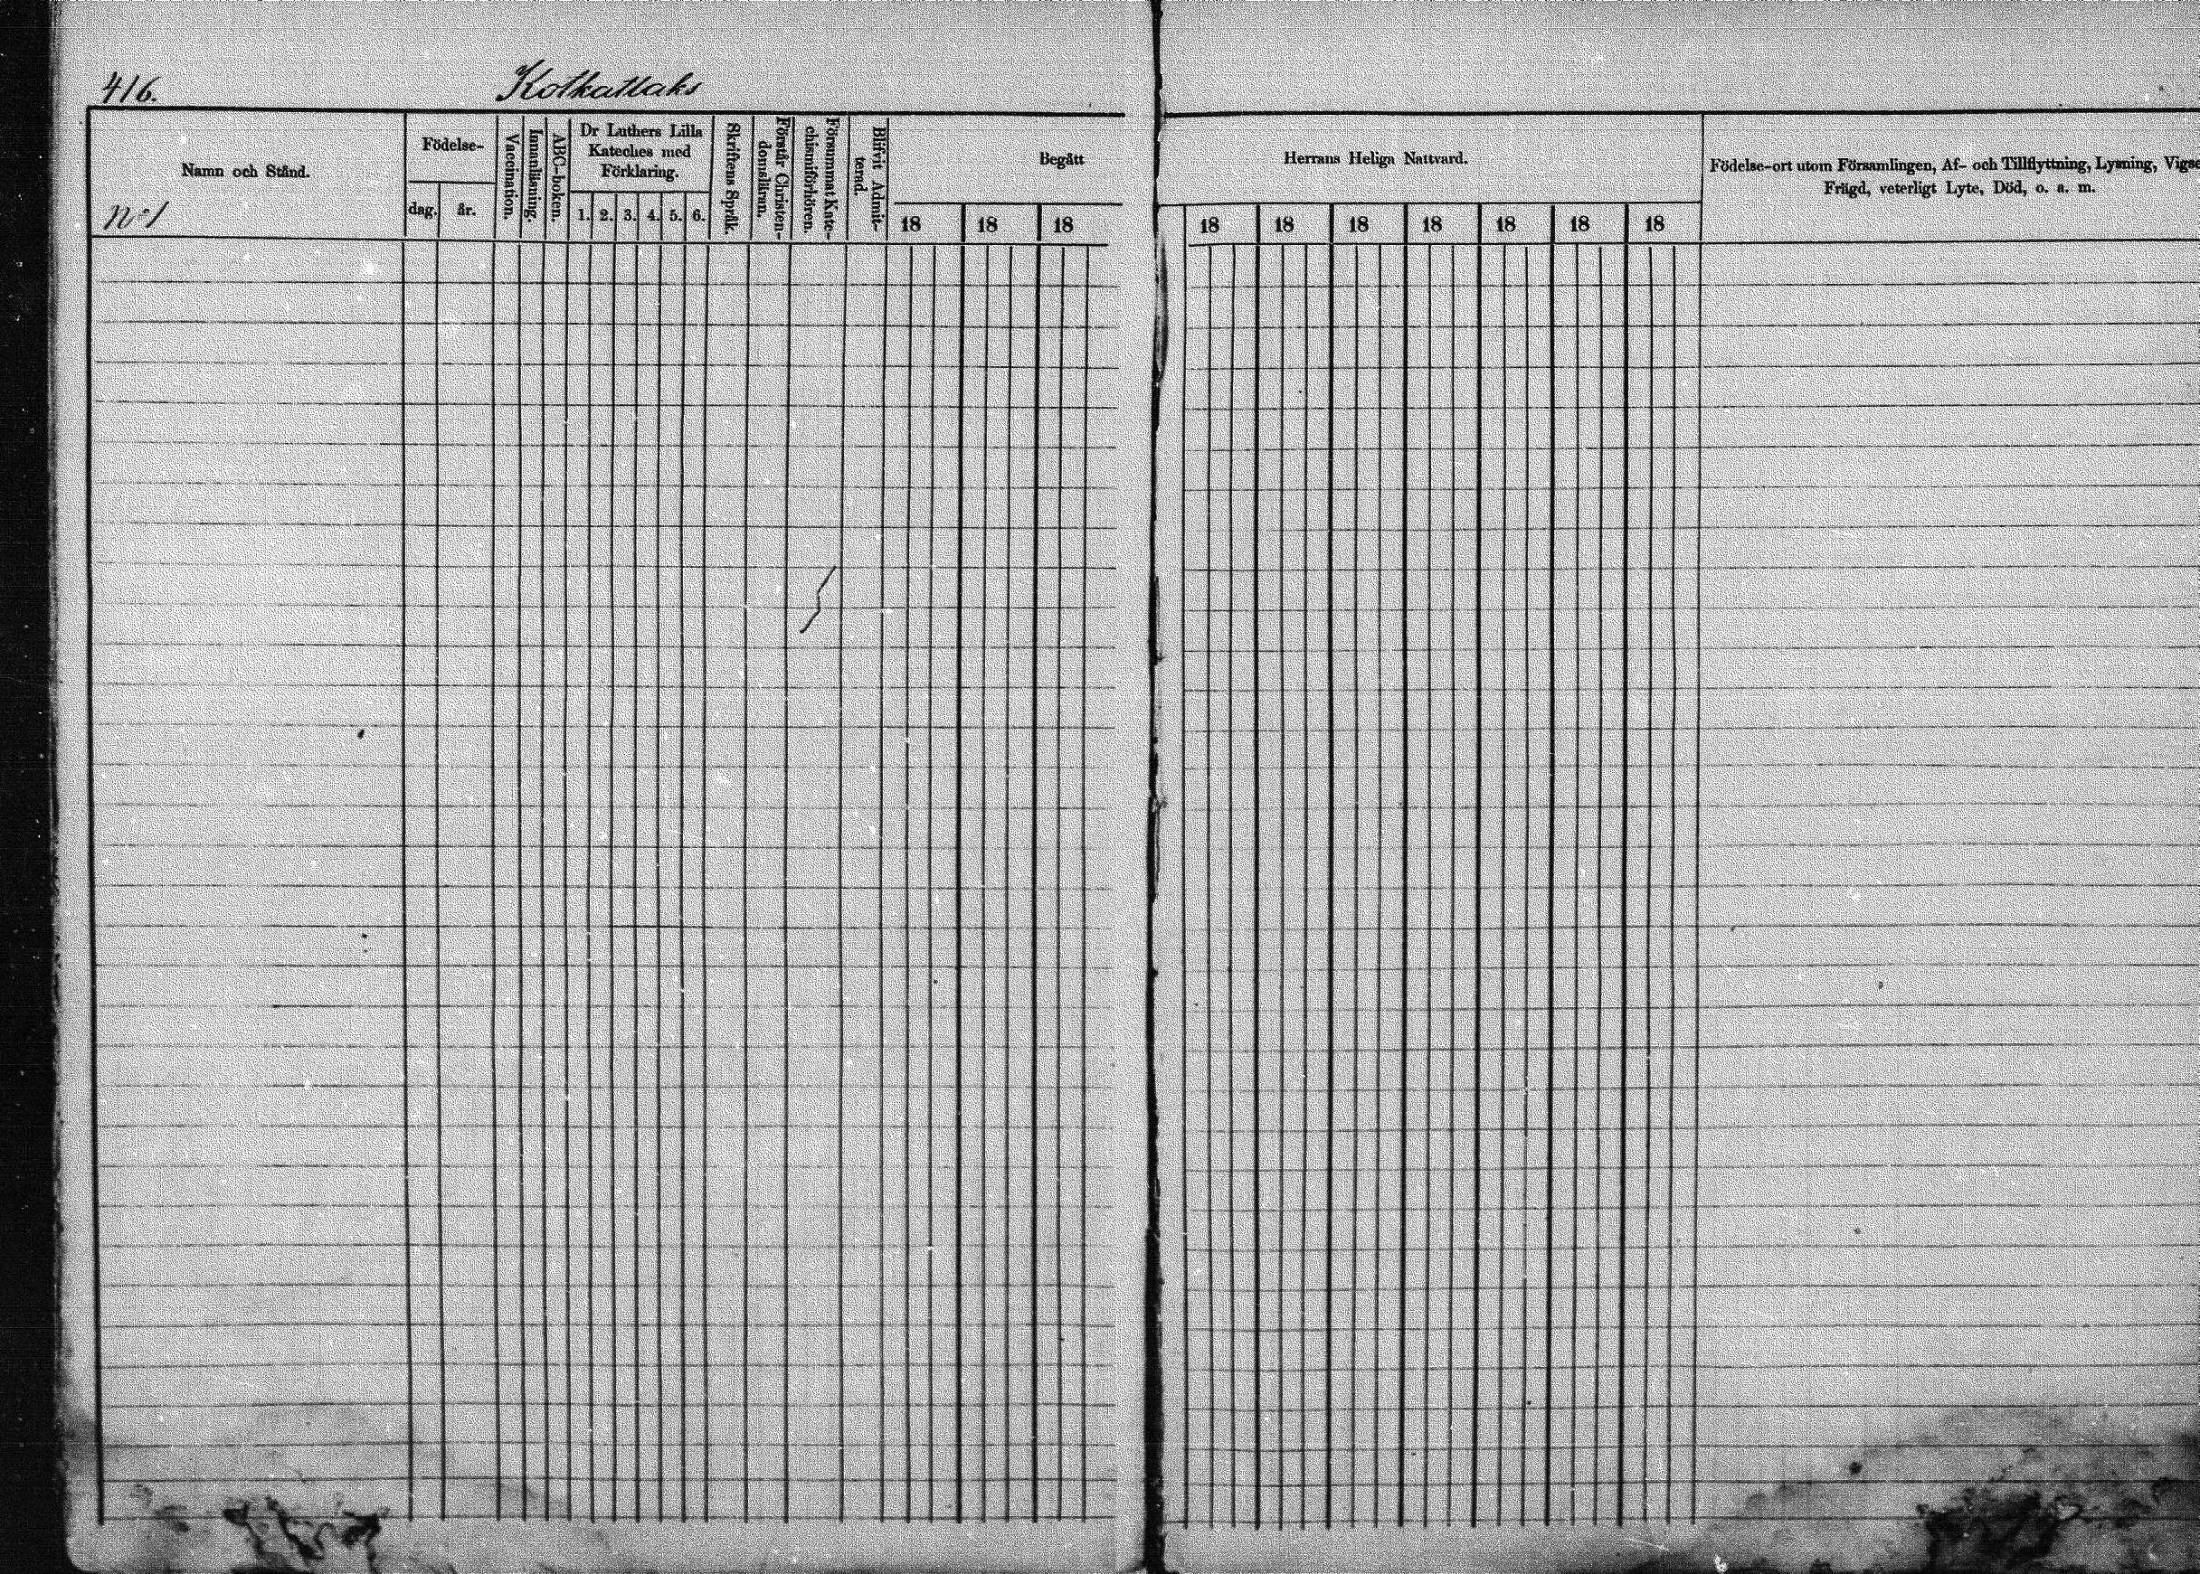 416. Kotkatlaks
Namn och Stånd.
No 1
Födelse-
dag. år.
Vaccination.
Innanläsning.
ABC-boken.
Dr Luthers Lilla
Kateches med
Förklaring.
1. 2. 3. 4. 5. 6.
Skriftens Språk.
Förstår Christen-
domsläran.
Försummat Kate-
chismiförhören.
Blifvit Admit-
terad.
Begått
18 18 18
Herrans Heliga Nattvard.
18 18 18 18 18 18 18
Födelse-ort utom Församlingen, Af- och Tillflyttning, Lysning,
Frägd, veterligt Lyte, Död, o. a. m.